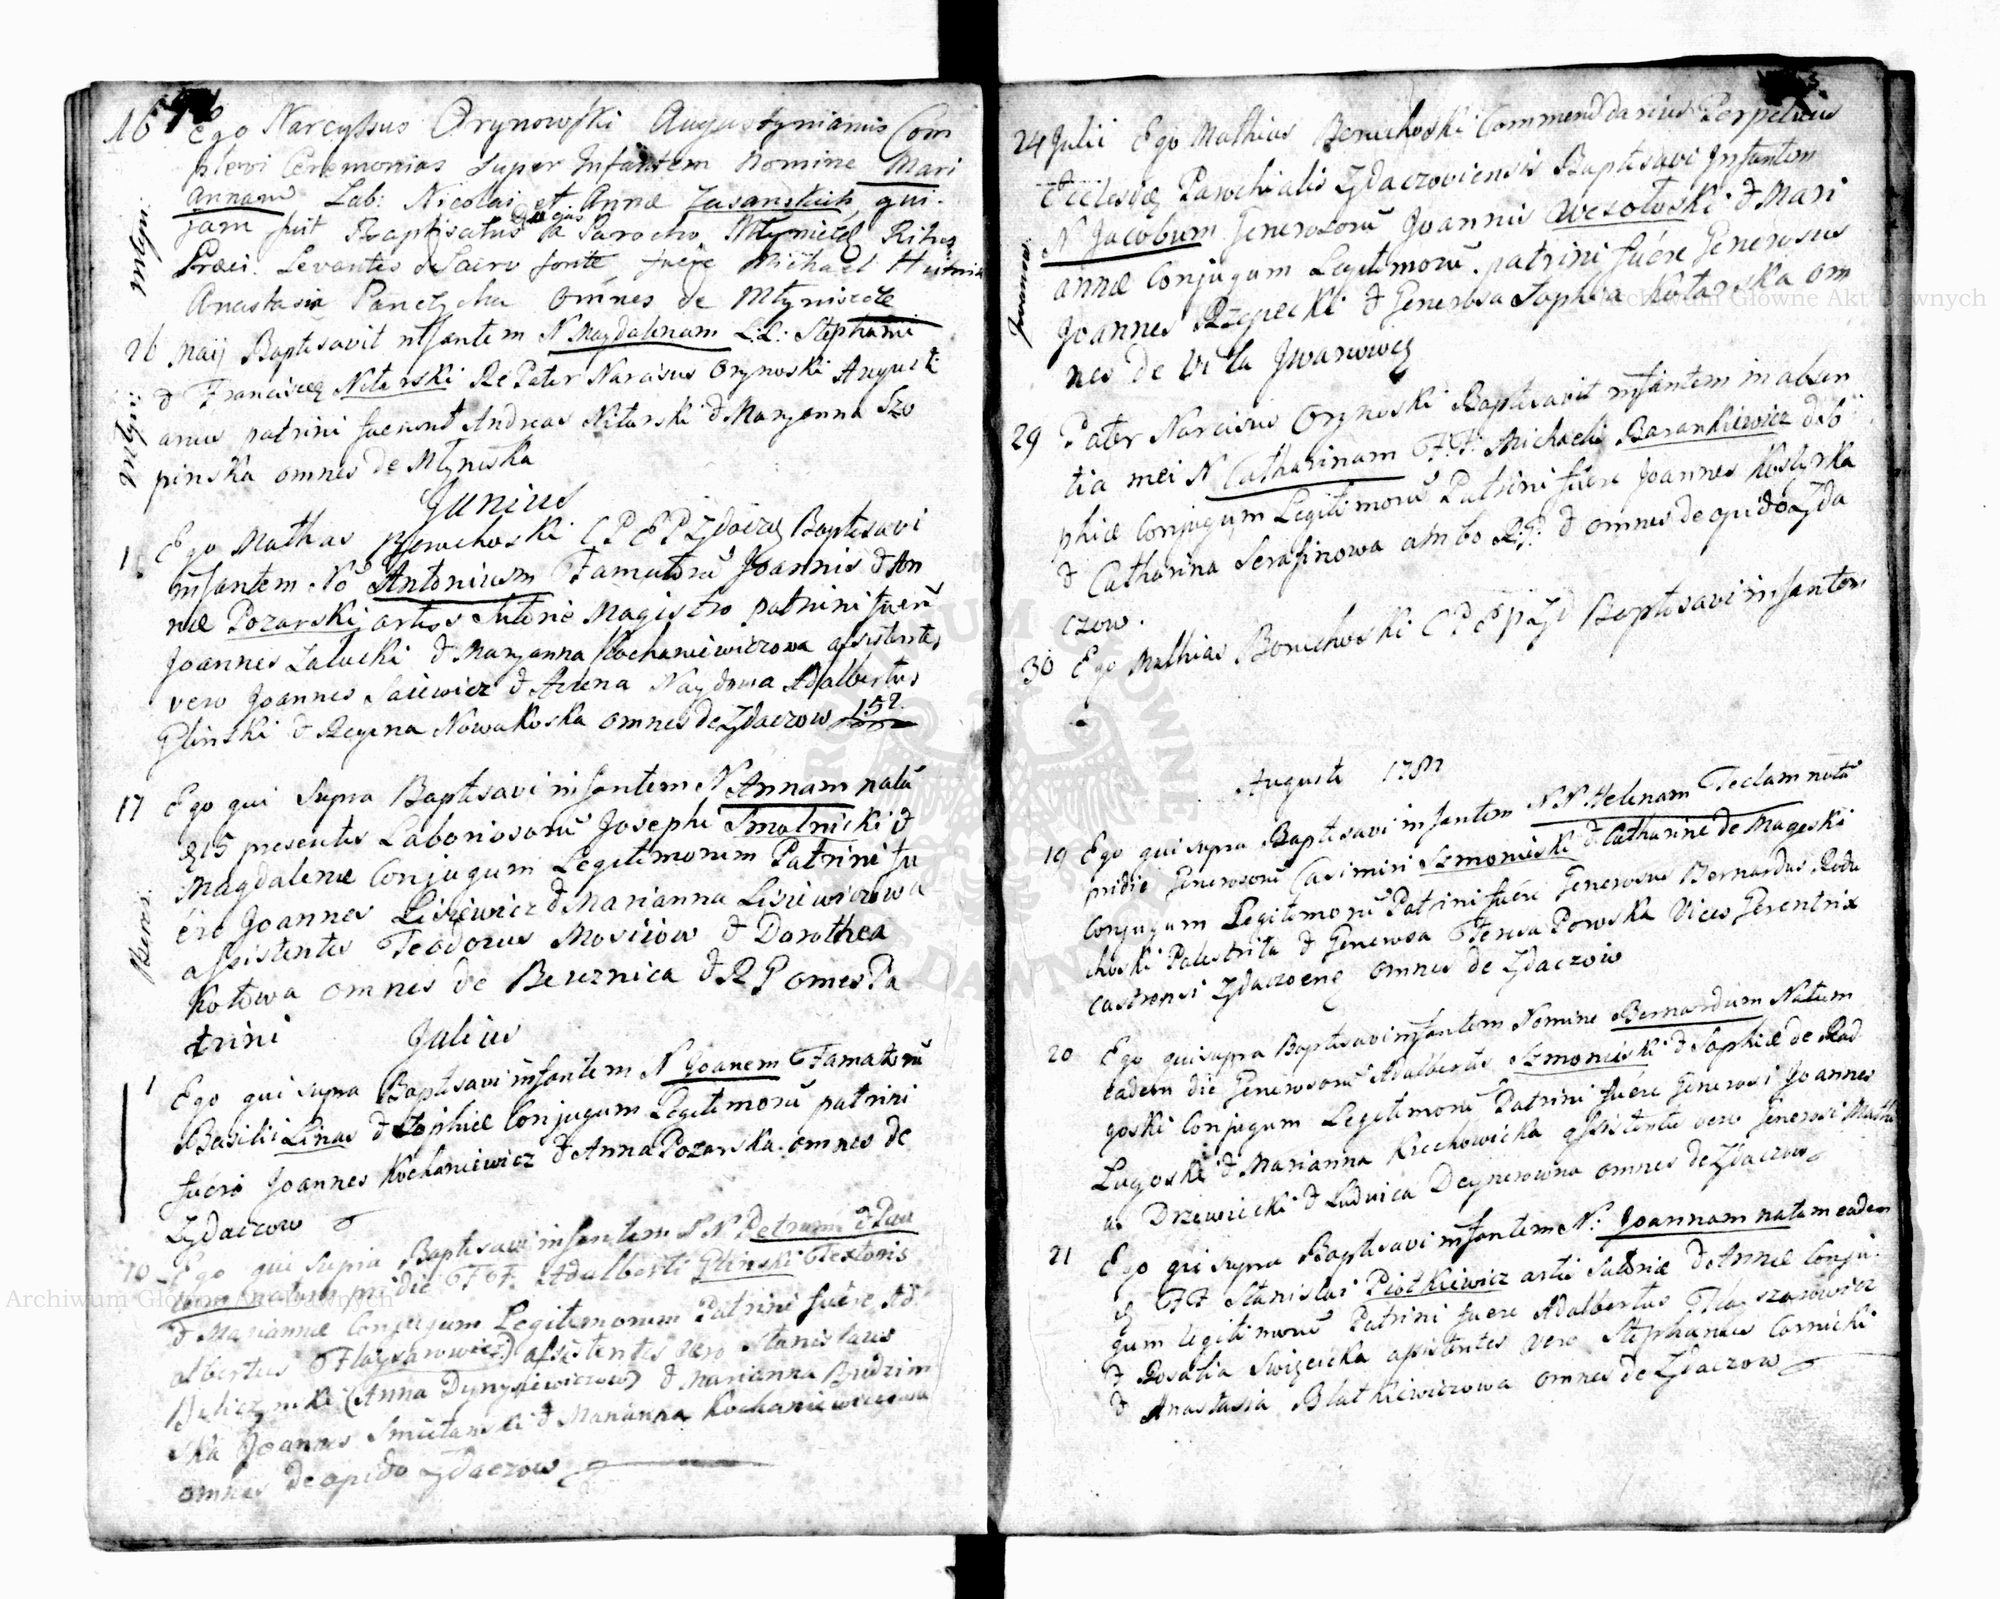 16 Ego Narcyssus Orynowski Augustynianus Com
plevi Ceremonias super Infantem Nomine Mari
annam Lab: Nicolai et Annæ Zusanskich qui
jam fuit Baptisatus a Parocho Ritus
Młyn:
Græci. Levantes de Sacro fonte fuere Michael
Anastasia omnes de Młyniscze
26 Maij Baptisavit infantem N Magdalenam L:L: Stephani
& Francisce Nitarski Re Pater Narcisus Orynoski August:
Młyn:
anus patrini fuerunt Andreas Nitarski & Maryanna Szo
pinska omnes de Młyniska
Junius
1 Ego Mathias Boruchoski C P E P Zydacze Baptisavi
infantem No Antonium Famatorũ Joannis & An
næ Pozarski artis Sutoriæ Magistro patrini fuerũ
Joannes Zalucki & Maryanna Kochaniewiczowa assistentes
vero Joannes Saiewicz & Adalbertus
Glinski & Regina Nowakoska omnes de Zydaczow
17 Ego qui supra Baptisavi infantem N Annam natã
15 presentis Laboriosorũ Josephi Smolnicki &
Magdalenæ Conjugum Legitimorum Patrini fu
ére Joannes Lisiewicz & Marianna Lisiewiczowa
Berez:
assistentes Teodorus Mosiiow & Dorothea
Kotowa omnes de Bereznica & R P omes Pa
trini
Julius
1 Ego qui supra Baptisavi infantem N Joanem Famatorũ
Basilii Linas & Sophiæ Conjugum Legitimorũ patrini
fuére Joannes Kochaniewicz & Anna Pozarska omnes de
Zydaczow
10 Ego qui supra Baptisavi infantem N N Petrum & Pau
lum natum pridie F F. Adalberti Glinski Textoris
& Mariannæ Conjugum Legitimorum Patrini fuére Ad
albertus assistentes vero Stanislaus
(Anna Dynysiewiczowa) & Marianna Brudzin
ska Joannes & Marianna Kochaniewiczowa
omnes de opido Zydaczow
24 Julii Ego Mathias Boruchoski Commenddarius Perpetuus
Ecclesiæ Parochialis Zydaczoviensis Baptisavi Infantem
N Jacobum Generosorũ Joannis Wesołoski & Mari
annæ Conjugum Legitimorũ. patrini fuére Generosus
Joannes Rzepecki & Generosa Sophia Kotarska om
nes de Villa Jwanowice
29 Pater Narcisus Orynoski Baptisavit infantem in absen
tia mei N Catharinam F.F. Michaeli Barankiewicz & So
phiæ Conjugum Legitimorũ Patrini fuére Joannes Kostyrka
& Catharina Serafinowa ambo R.P. & omnes de opido Zyda
czow.
30 Ego Mathias Boruchoski C P E P Zy Baptisavi infantem
Augusti
19 Ego qui supra Baptisavi infantem N N Helenam Teclam natã
pridie Generosorũ Casimiri Szmoniski & Catharinæ de Mageski
Conjugum Legitimorũ Patrini fuére Generosus Bernardus Rodu
choski Palestrita & Generosa Teresa Powska Vices Gerentrix
Castrensi Omnes de Zydaczow
20 Ego qui supra Baptisavi infantem Nomine Bernardum Natum
eadem die Generosorũ Adalbertus Szmoniski & Sophiæ de Rad
goski Conjugum Legitimorũ Patrini fuere Generosi Joannes
Lugoski & Marianna Krechowicka assistente vero Generosi Mathi
as Drzewiecki & Ludvica Deynerowna omnes de Zydaczow
21 Ego qui supra Baptisavi infantem N: Joannam natam eadem
F F Stanislai Piotkiewicz artis Sutoriæ & Annæ Conju
gum legitimorũ Patrini fuere Adalbertus
& Rosalia Swizeicka assistentes vero Stephanus Cornicki
& Anastasia Blatkiewiczowa omnes de Zydaczow
Archiwum Główne Akt Dawnych
Archiwum Główne Akt Dawnych